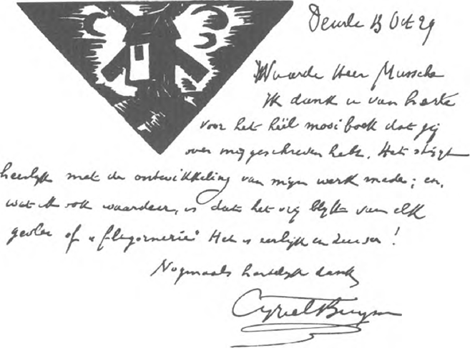 Deurle 13 Oct 29
Waarde Heer Mussche
Ik dank u van harte
voor het héel mooi boek dat gij
over mij geschreven hebt. Het stijgt
heerlijk met de ontwikkeling van mijn werk mede; en,
wat ik ook waardeer, is dat het vrij blijft van elk
gevlei of "flagornerie" Het is eerlijk en zuiver!
Nogmaals hartelijk dank
Cyriel Buysse